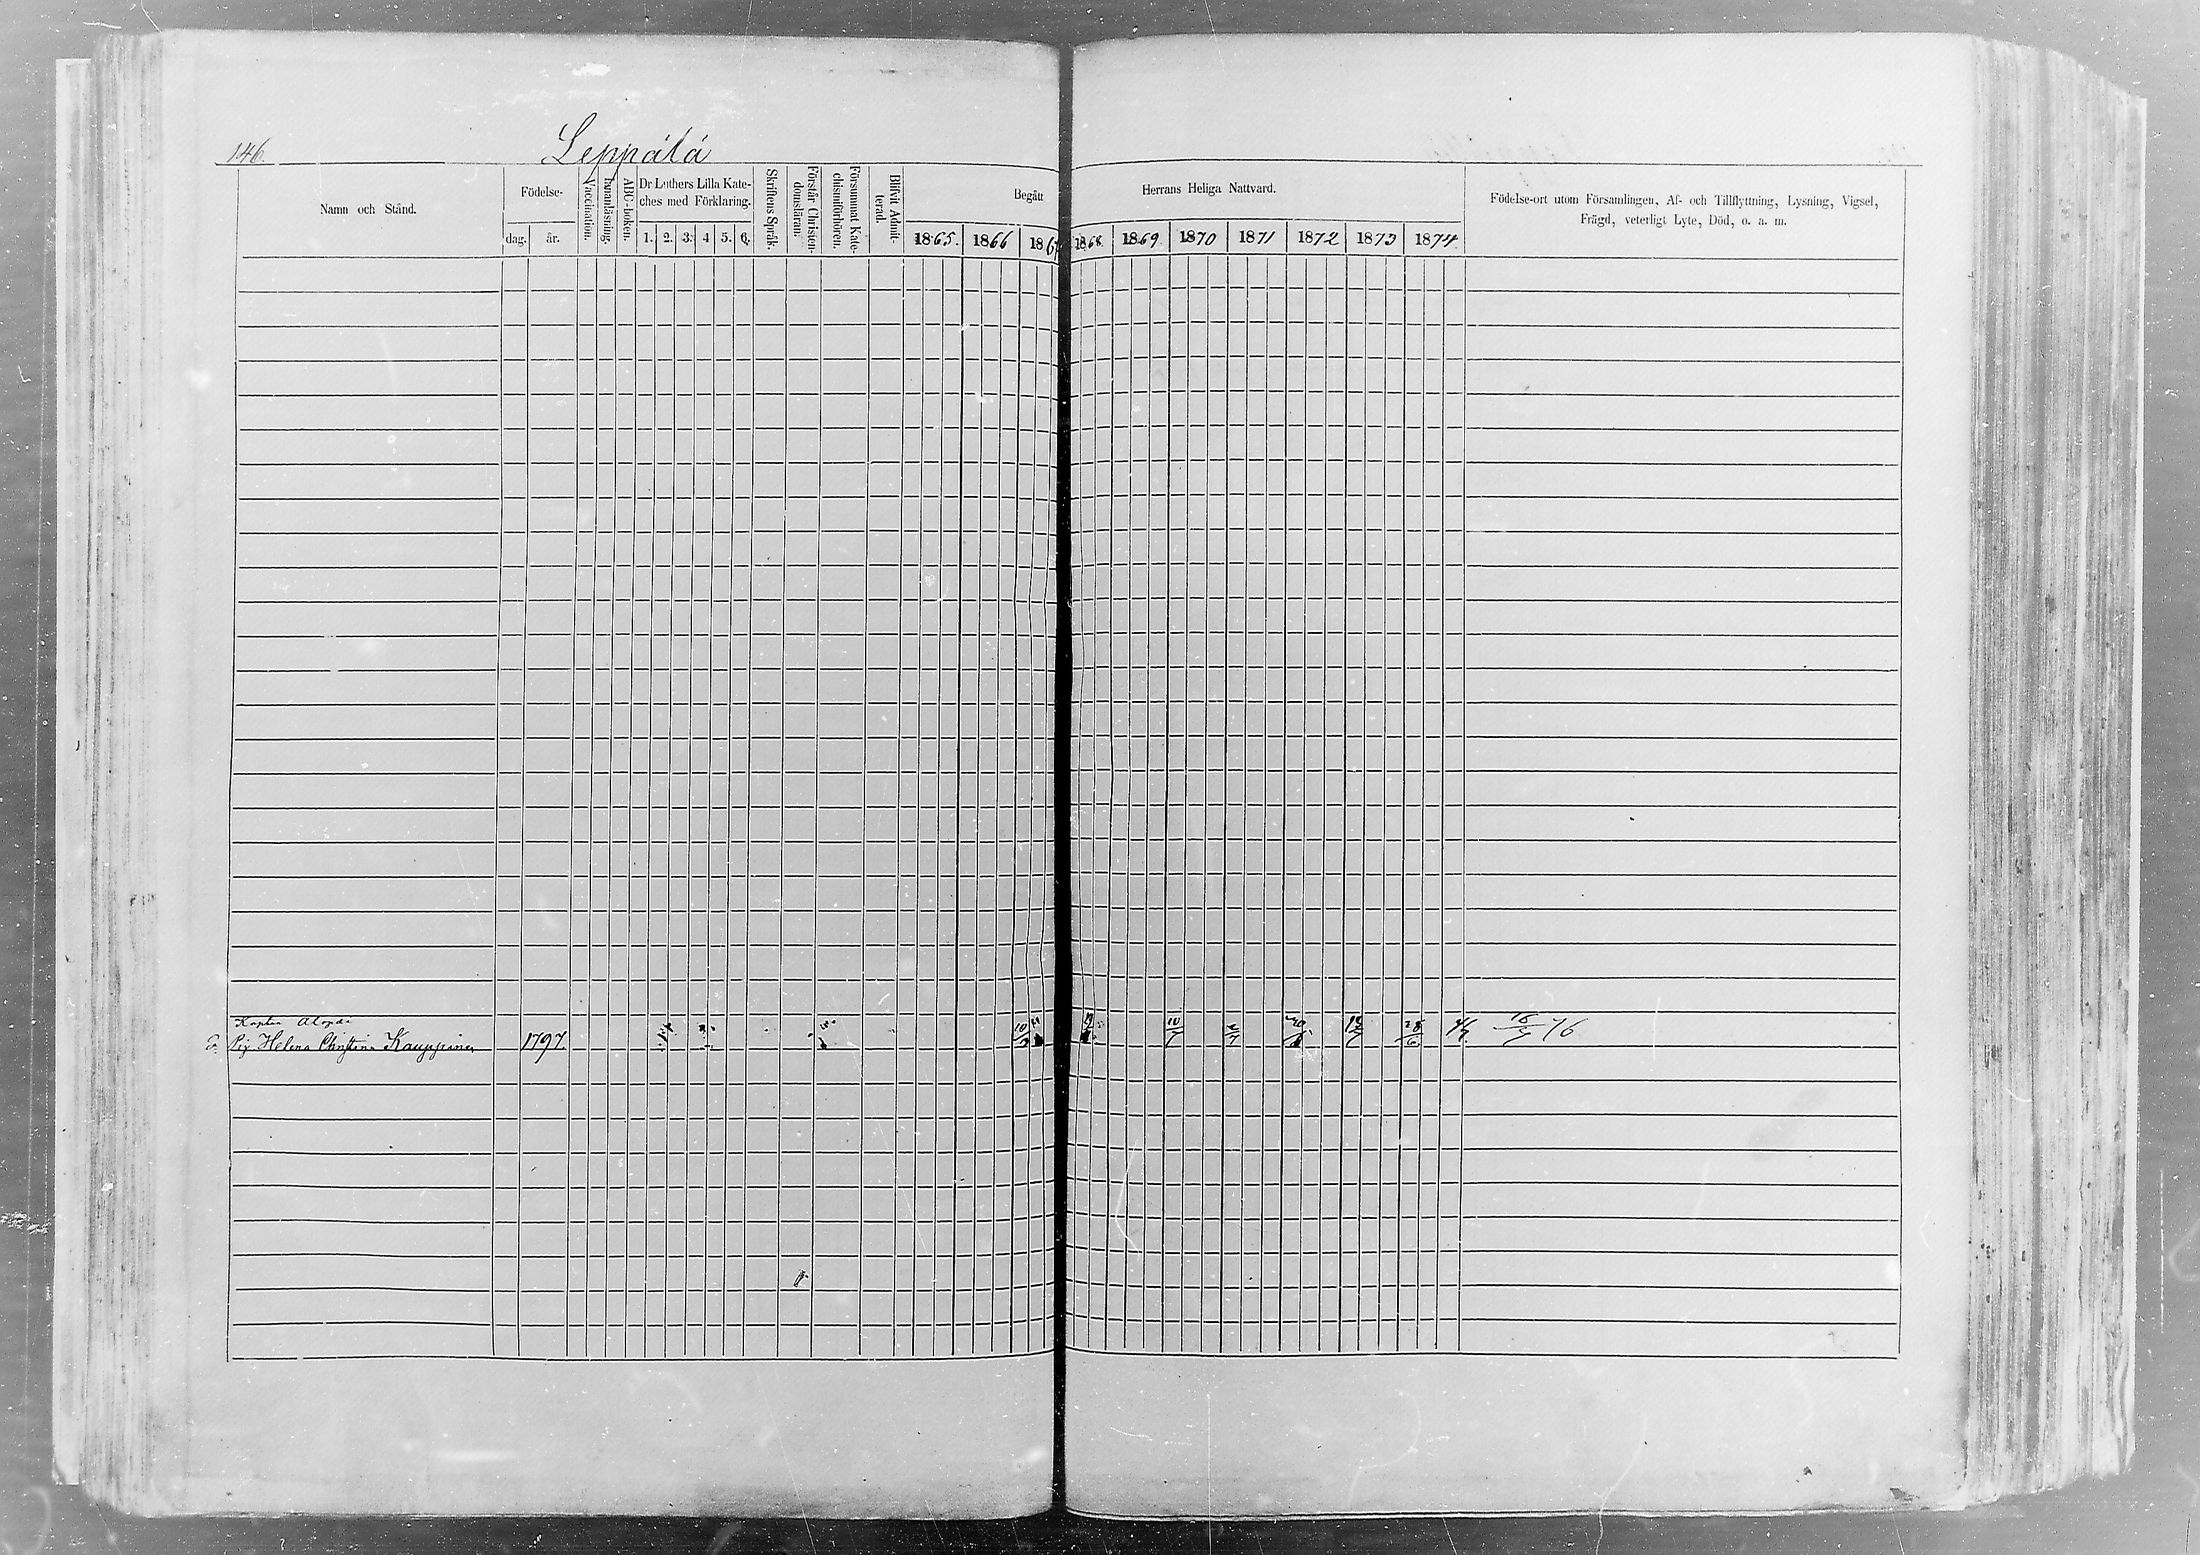 146.
Leppälä
Namn och Stånd.
Födelse-
dag.
år.
Vaccination.
Innanläsning.
ABC-boken.
Dr Luthers Lilla Kate-
ches med Förklaring.
1. 2. 3. 4 5. 6.
Skriftens Språk.
Förstår Christen-
domsläran.
Försummat Kate-
chismiförhören.
Blifvit Admit-
terad.
Begått
Herrans Heliga Nattvard.
1865. 1866 1867 1868 1869 1870 1871 1872 1873 1874
Födelse-ort utom Församlingen, Af- och Tillflyttning, Lysning, Vigsel,
Frägd, veterligt Lyte, Död, o. a. m.
Pig. Helena Christina Kauppinen 1797. 76